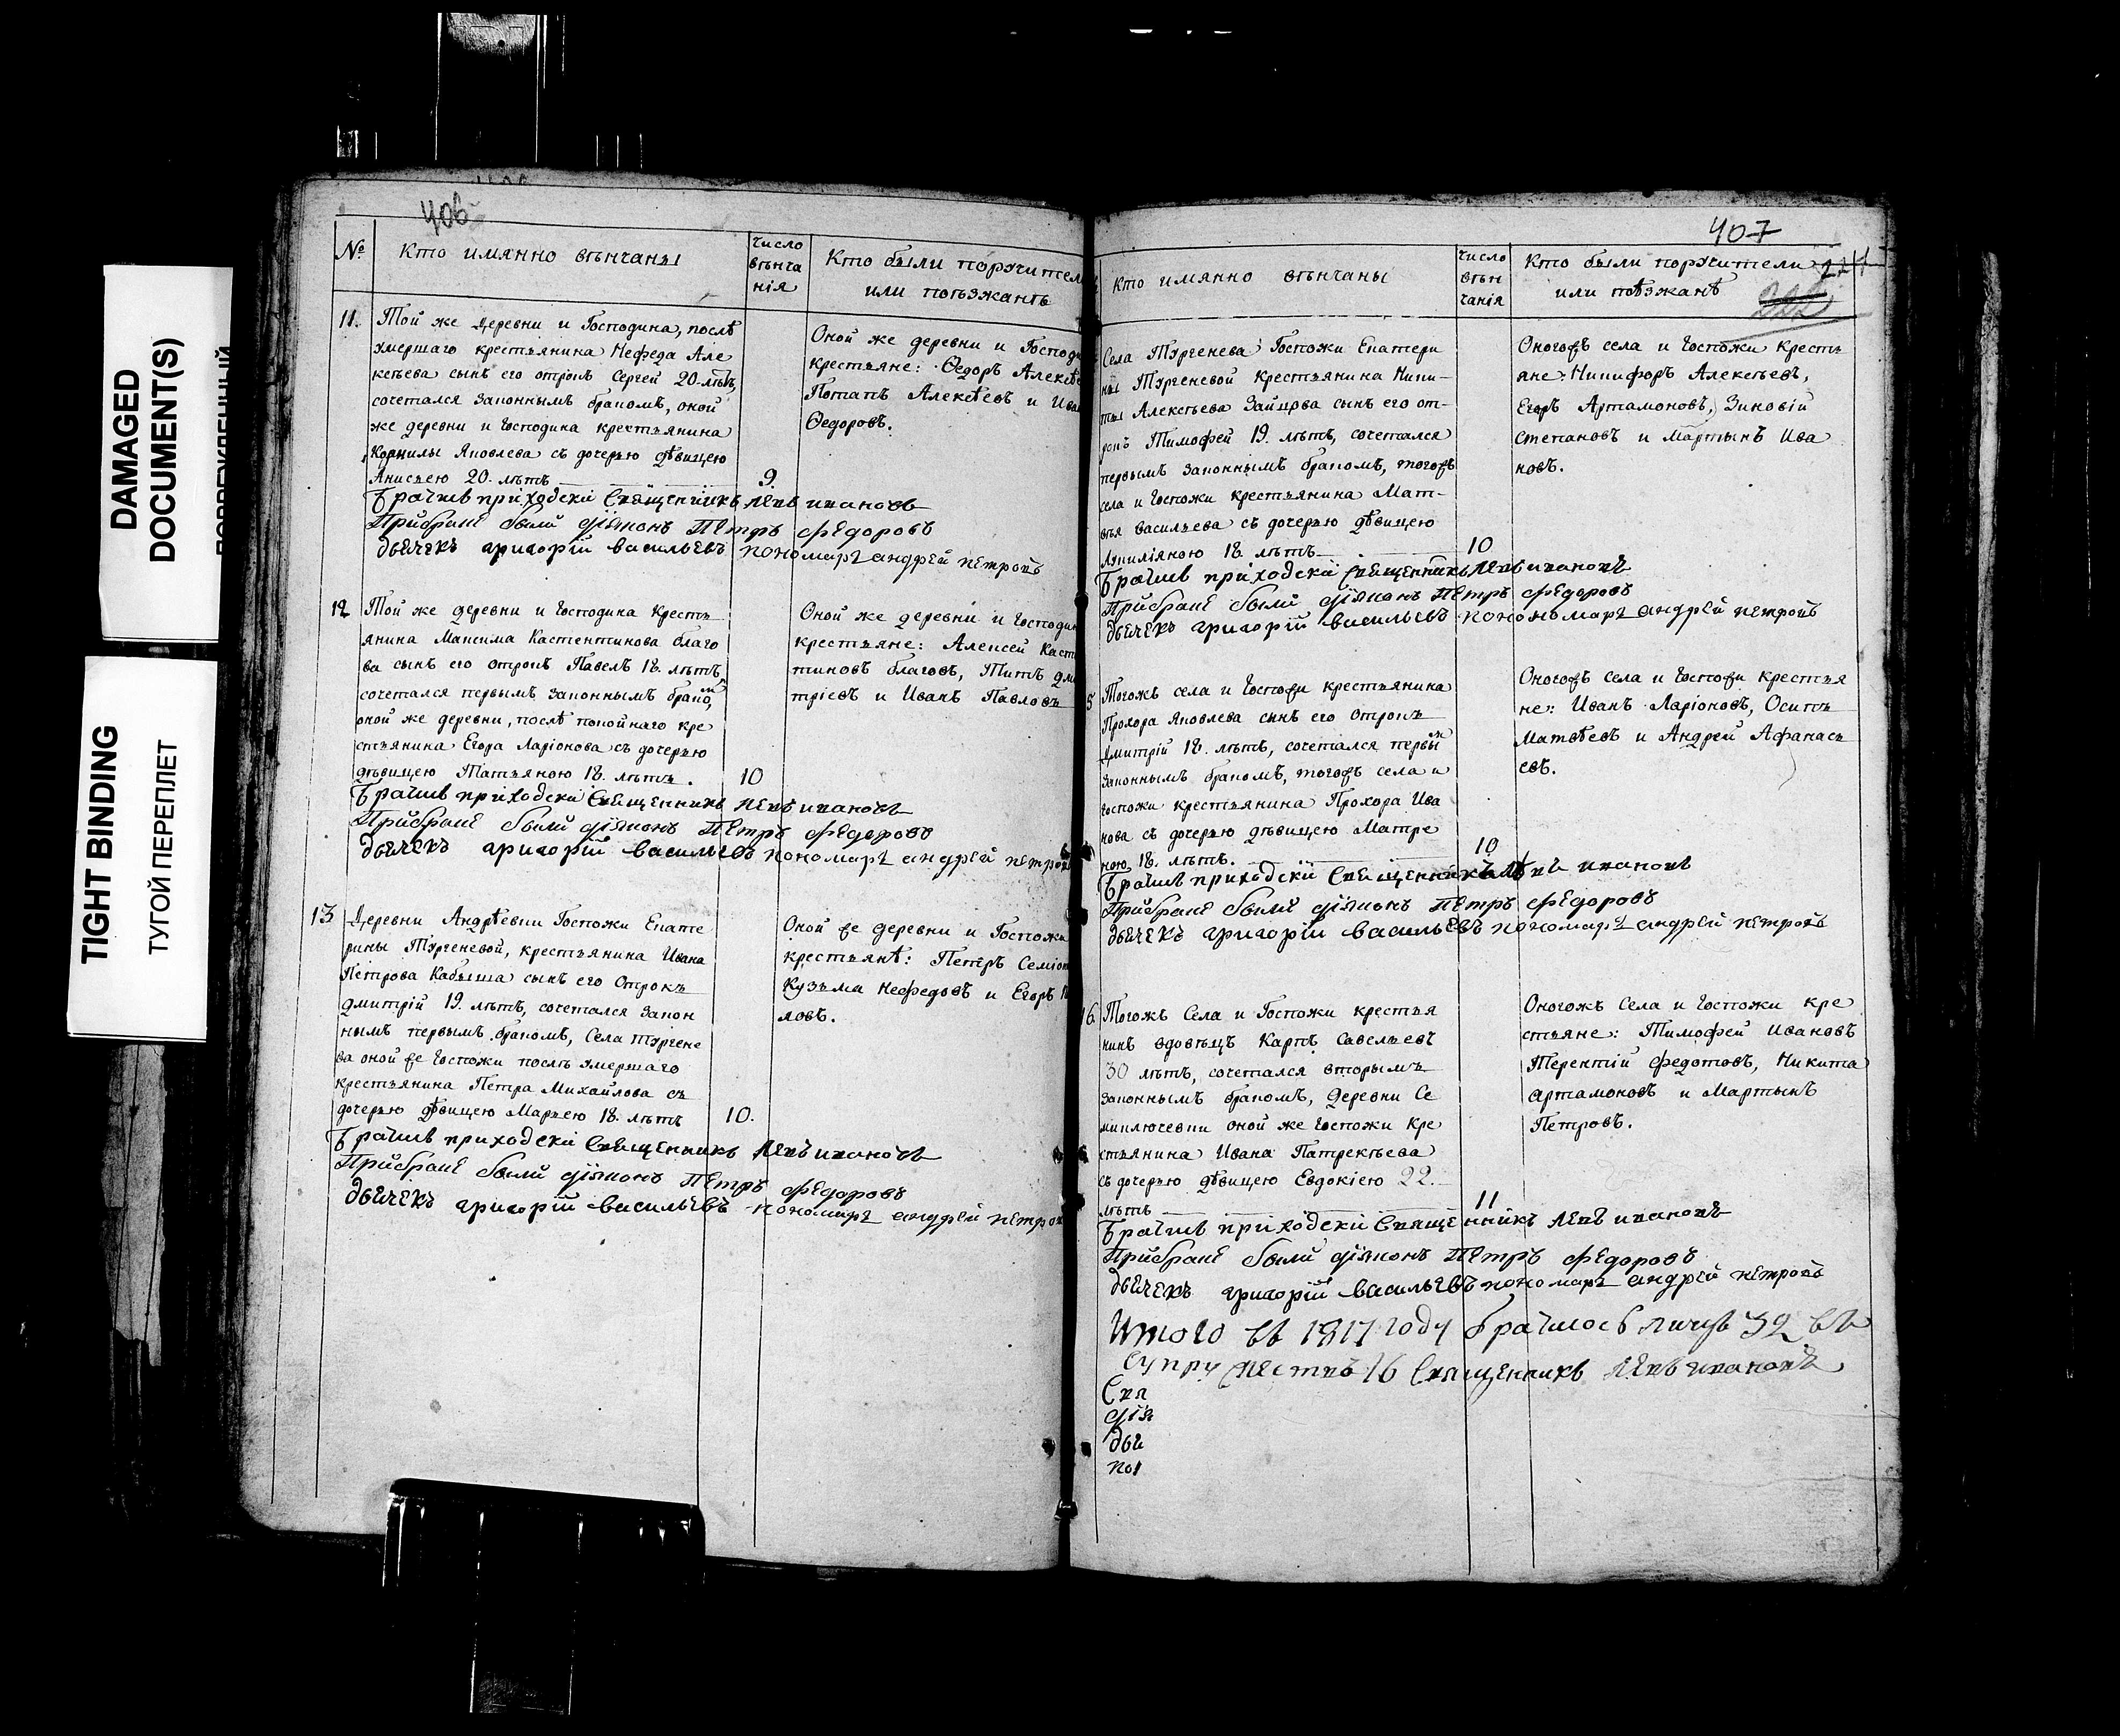 DAMAGED
DOCUMENT(S)
TIGHT BINDING
ТУГОЙ ПЕРЕПЛЕТ
406
№
Кто имянно вѣнчаны
Число
вѣнча
нія
Кто были поручител
или поѣзжанѣ
11.
Той же деревни и Господина, послѣ
умершаго крестьянина Нефеда Але
ксѣева сынъ его отрокъ Сергей 20. лѣтъ,
сочетался законнымъ бракомъ, оной
же деревни и господина крестьянина
Корнилы Яковлева съ дочерью дѣвицею
Анисьею 20. лѣтъ
9.
Оной же деревни и Господи
крестьяне: Ѳедоръ Алексѣе
Потапъ Алексѣевъ и Ива
Ѳедоровъ.
Брачилъ приходскій Священникъ Левъ Ивановъ
При бракѣ были діяконъ Петръ Федоровъ
дьячекъ григорій васильевъ пономарь андрей петровъ
12
Той же деревни и господина Кресть
янина Максима Кастентинова благо
ва сынъ его отрокъ Павелъ 18. лѣтъ,
сочетался первымъ законнымъ бракомъ,
оной же деревни, послѣ покойнаго кре
стьянина Егора Ларіонова съ дочерью
дѣвицею Татьяною 18. лѣтъ.
10
Оной же деревни и господин
крестьяне: Алексей Каст
тиновъ благовъ, Титъ дми
тріевъ и Иванъ Павловъ
Брачилъ приходскій Священникъ Левъ Ивановъ
При бракѣ были діяконъ Петръ Федоровъ
дьячекъ григорій васильевъ пономарь андрей петров
13
Деревни Андрѣевки Госпожи Екате
рины Тургеневой, крестьянина Ивана
Петрова Кабыша сынъ его Отрокъ
дмитрій 19. лѣтъ, сочетался закон
нымъ первымъ бракомъ, Села Тургене
ва оной же госпожи послѣ умершаго
крестьянина Петра Михайлова съ
дочерью дѣвицею Марьею 18. лѣтъ
10.
Оной же деревни и Госпожи
крестьянѣ: Петръ Семіон
Кузьма Нефедовъ и Егоръ
ловъ.
Брачилъ приходскій Священникъ Левъ Ивановъ
При бракѣ были діяконъ Петръ Федоровъ
дьячекъ григорій васильевъ пономарь андрей петров
407
Кто имянно вѣнчаны
Число
вѣн
чанія
Кто были поручители
или поѣзжанѣ
Села Тургенева Госпожи Екатери
ны Тургеневой Крестьянина Ники-
ты Алексѣева Зайцова сынъ его от-
рокъ Тимофей 19. лѣтъ, сочетался
первымъ законнымъ бракомъ, тогожъ
села и госпожи крестьянина Мат-
вѣя васильева съ дочерью дѣвицею
Акилiяною 18. лѣтъ
10
Оногожъ села и госпожи кресть
яне: Никифоръ Алексѣевъ,
Егоръ Артамоновъ, Зиновій
степановъ и Мартынъ Ива
новъ.
Брачилъ приходскій Священникъ Левъ Ивановъ
При бракѣ были діяконъ Петръ Федоровъ
дьячекъ григорій васильевъ пономарь андрей петровъ
5
Тогожъ села и госпожи крестьянина
Прохора Яковлева сынъ его Отрокъ
Дмитрій 18. лѣтъ, сочетался первымъ
законнымъ бракомъ, тогожъ села и
госпожи крестьянина Прохора Ива
нова съ дочерью дѣвицею Матре
ною 18. лѣтъ.
10
Оногожъ села и госпожи крестья
не: Иванъ Ларіоновъ, Осипъ
Матвѣевъ и Андрей Афанась
евъ.
Брачилъ приходскій Священникъ Левъ Ивановъ
При бракѣ были діяконъ Петръ Федоровъ
дьячекъ григорій васильевъ пономарь андрей петровъ
16.
Тогожъ Села и Госпожи крестья
нинъ вдовѣцъ Карпъ Савельевъ
30 лѣтъ, сочетался вторымъ
законнымъ бракомъ, Деревни Се
миключевки оной же госпожи Кре
стьянина Ивана Патрекѣева
съ дочерью дѣвицею Евдокіею 22.
лѣтъ
11
Оногожъ Села и госпожи кре
стьяне: Тимофей Ивановъ
Терентій Федотовъ, Никита
артамоновъ и Мартынъ
Петровъ.
Брачилъ приходскій Священникъ Левъ Ивановъ
При бракѣ были діяконъ Петръ Федоровъ
дьячекъ григорій васильевъ пономарь андрей петровъ
Итого въ 1817 году брачилось лицъ 32 въ
супружествѣ 16 Священникъ Левъ Ивановъ
Свя
дія
дья
пон